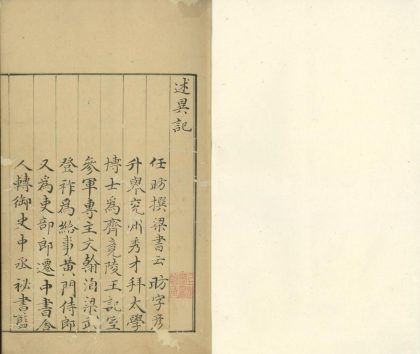 述異記
任昉撰梁書云昉字彦
升舉兖州秀才拜太學
博士為齊竟陵王記室
參軍專主文翰洎梁武
登祚為給事黄門侍郎
又為吏部郎遷中書舍
人轉御史中丞祕書監